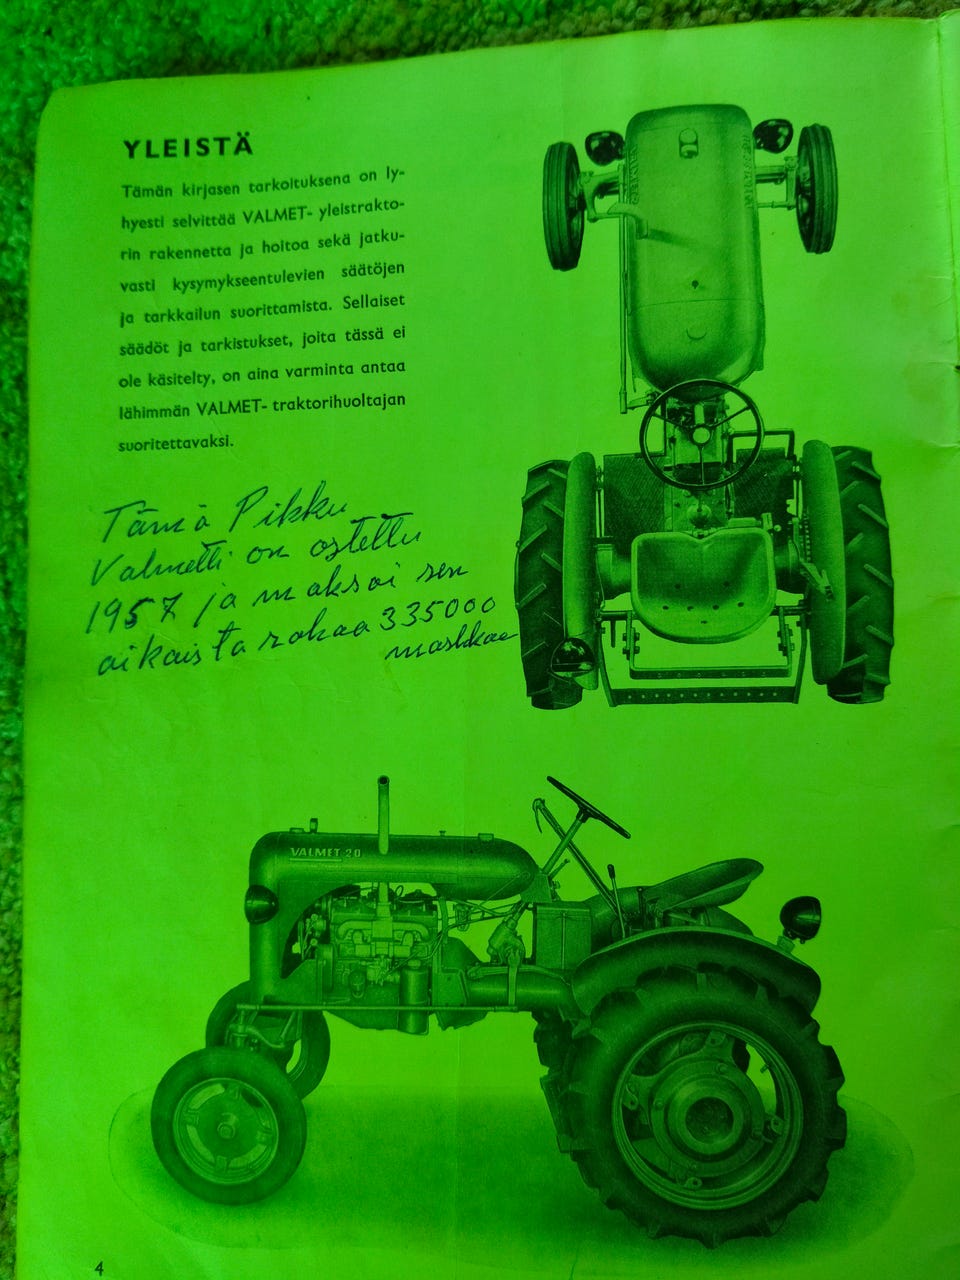 YLEISTÄ
Tämän kirjasen tarkoituksena on ly-
hyesti selvittää VALMET- yleistrakto-
rin rakennetta ja hoitoa sekä jatku-
vasti kysymykseentulevien säätöjen
ja tarkkailun suorittamista. Sellaiset
säädöt ja tarkistukset, joita tässä ei
ole käsitelty, on aina varminta antaa
lähimmän VALMET- traktorihuoltajan
suoritettavaksi.
Tämä Pikku
Valmetti on ostettu
1957 ja maksoi sen
aikaista rahaa 335000
markkaa
VALMET 20
4